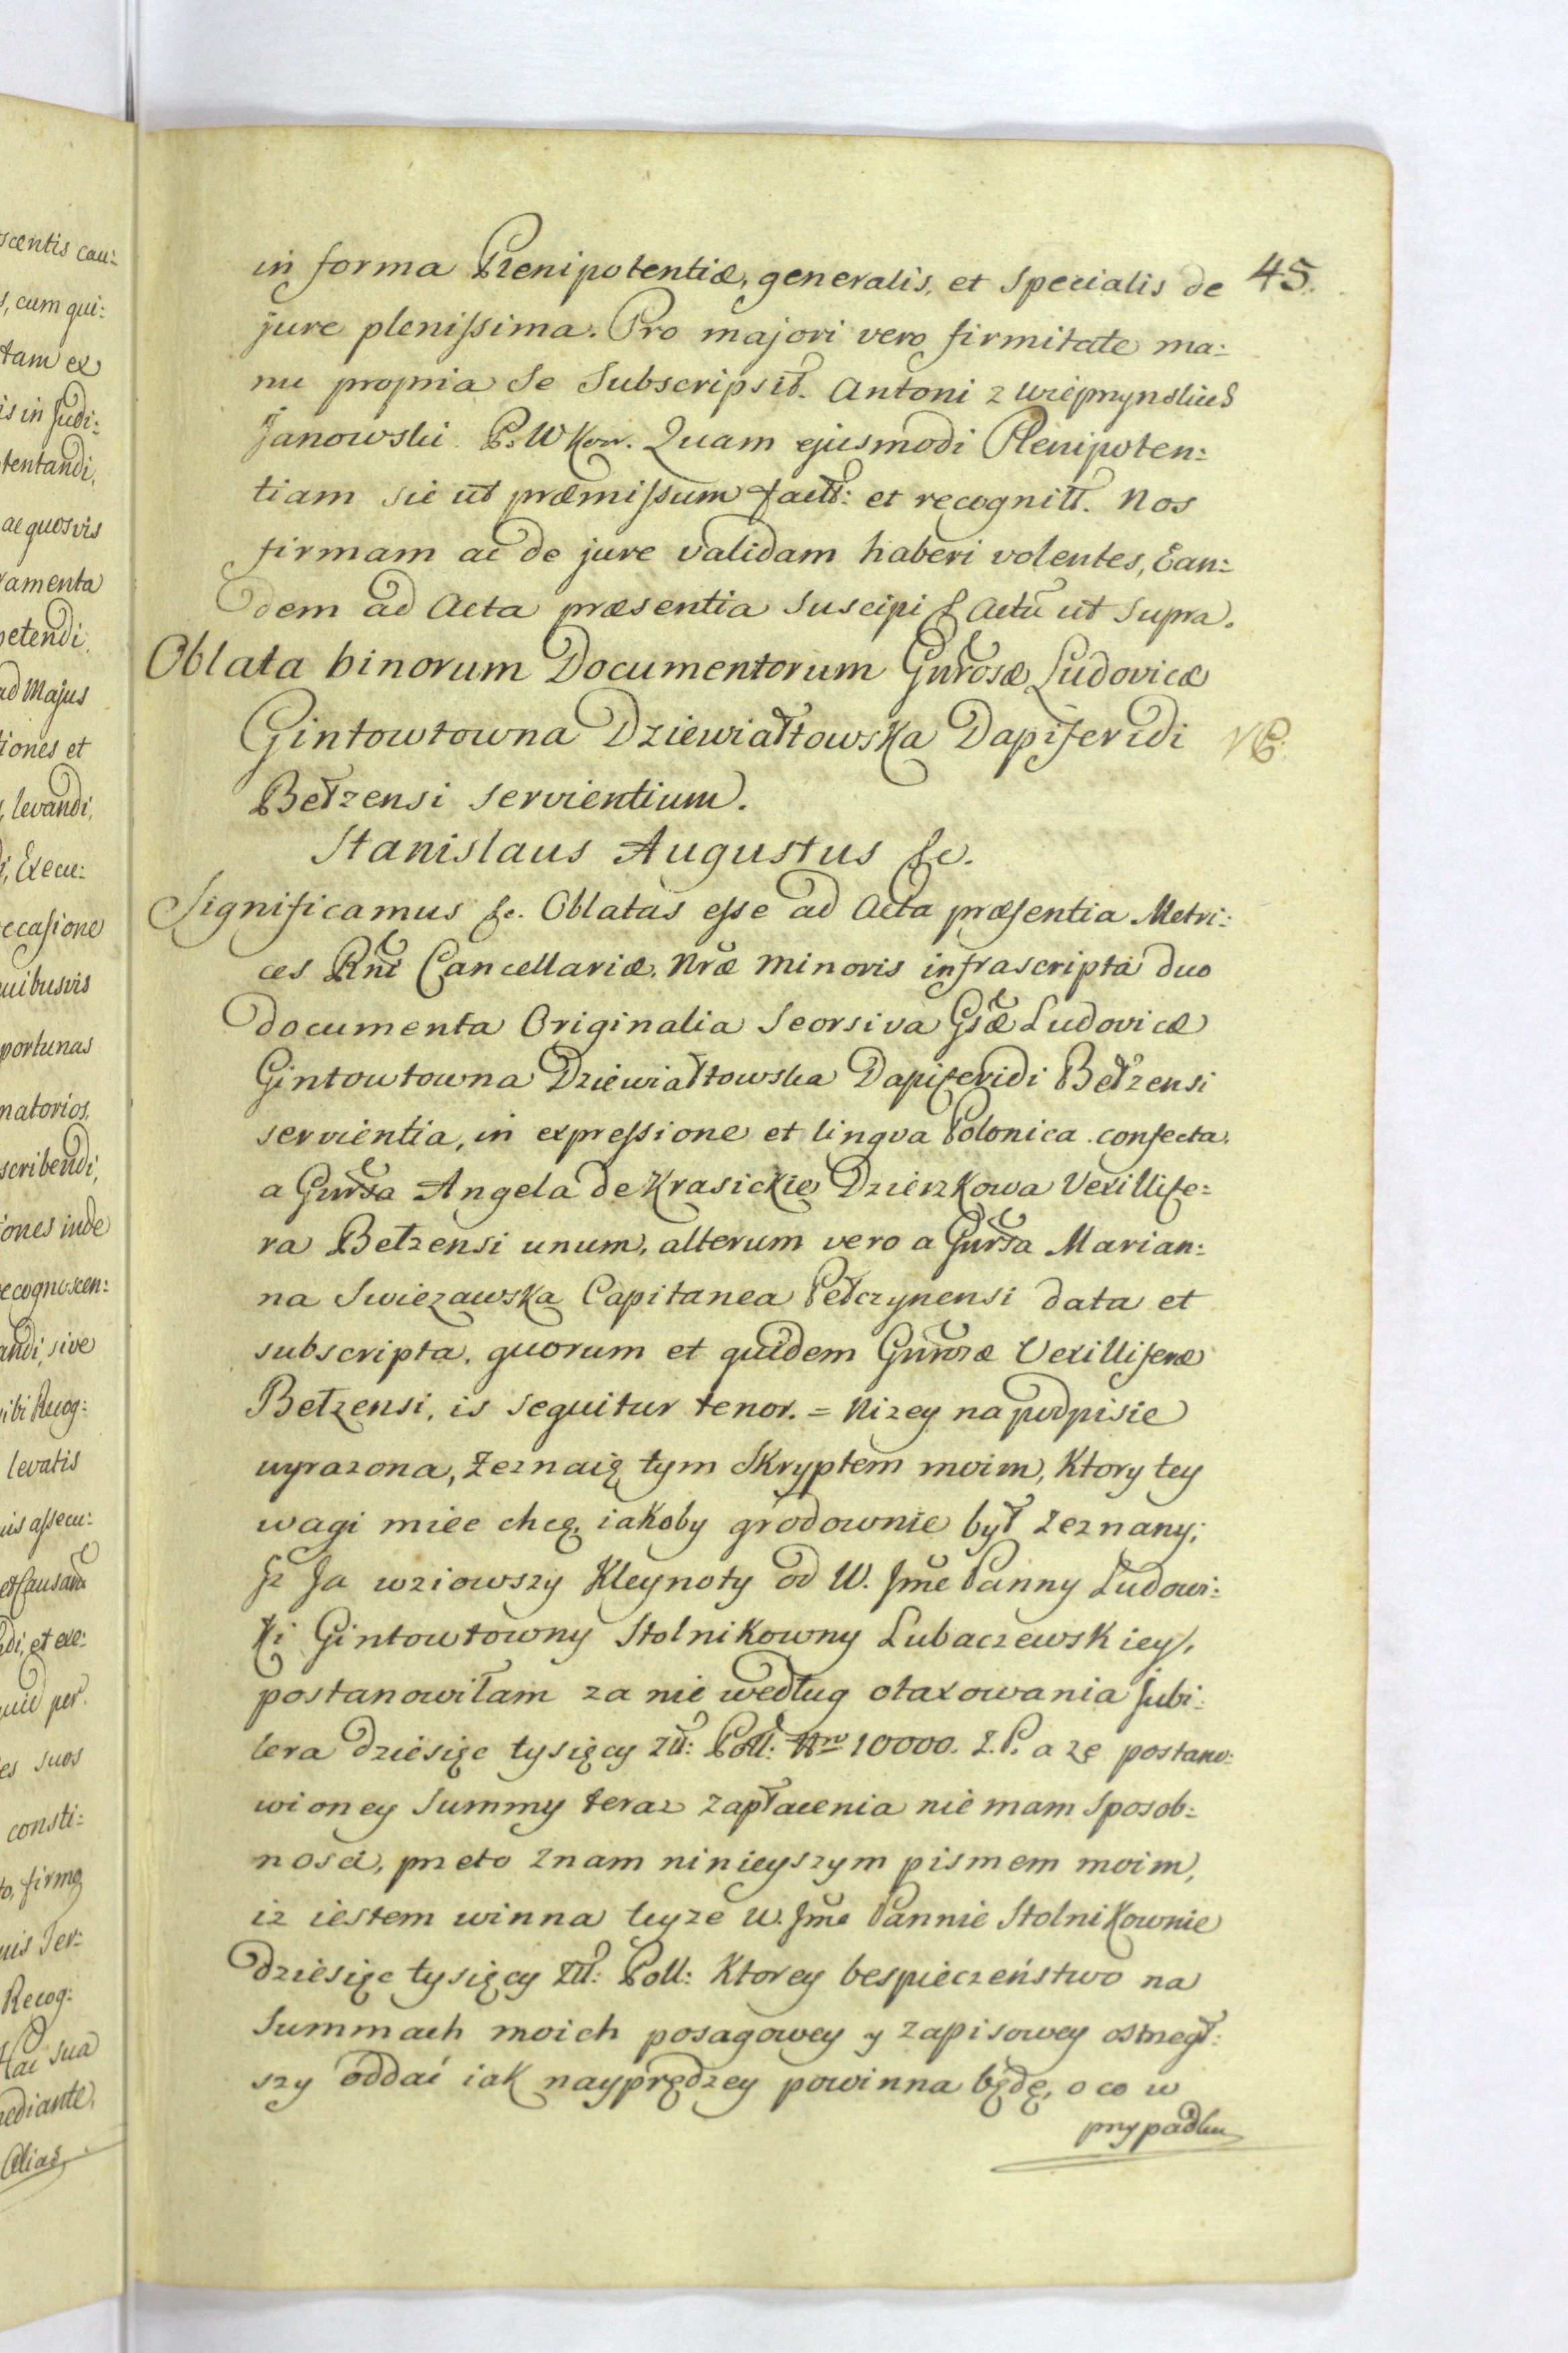 45.
in forma Plenipotentiæ, generalis, et Specialis de
jure plenissima. Pro majori vero firmitate ma:
nu propria se Subscripsit. Antoni z
Janowski P. W Kow. Quam ejusmodi Plenipoten:
tiam sic ut præmissum factt: et recognitt. Nos
firmam ac de jure validam haberi volentes, Ean:
dem ad Acta præsentia suscipi & Actū ut supra.
Oblata binorum Documentorum Gnrosæ Ludovicæ
Gintowtowna Dziewiałtowska Dapiferidi
Bełzensi servientium.
NB.
Stanislaus Augustus &c.
Significamus &c. Oblatas esse ad Acta præsentia Metri:
ces Rni Cancellariæ. Nræ Minoris infrascripta duo
documenta Originalia Seorsiva Gsæ Ludovicæ
Gintowtowna Dziewiałtowska Dapiferidi Bełzensi
servientia, in expressione et lingva Polonica confecta.
a Gnrsa Angela de Krasickie Dzierzkowa Vexillife:
ra Bełzensi unum, alterum vero a Gnrsa Marian:
na Swiezawska Capitanea Pełczynensi data et
subscripta. quorum et quidem Gnrosæ Vexilliferæ
Bełzensi, is sequitur tenor. = Nizey na podpisie
wyrazona, Zeznaię tym Skryptem moim, Ktory tey
wagi miec chcę, iakoby grodownie był zeznany;
Jz Ja wziowszy Kleynoty od W. Jme Panny Ludowi:
ki Gintowtowny Stolnikowny Lubaczewskiey,
postanowiłam za nie według otaxowania Jubi:
lera dziesięc tysięcy Złł: Poll: Nro 10000. Z.P. a ze postano:
wioney Summy teraz zapłacenia nie mam sposob:
nosci, przeto znam ninieyszym pismem moim,
iz iestem winna teyze W. Jme Pannie Stolnikownie
dziesięc tysięcy Złł: Poll: Ktorey bespieczeństwo na
Summach moich posagowey y zapisowey ostrzegł:
szy oddać iak nayprędzey powinna będę, o co w
przypadku
scentis cau:
s, cum qui:
tam ex
is in Judi:
tentandi,
ac quosvis
ramenta
petendi,
ad Majus
tiones et
, levandi,
i, Execu:
ccasione
uibusvis
portunas
natorios,
scribendi,
iones inde
ecognoscen:
andi, sive
ibi Recog:
levatis
uis assecu:
et Causam
di, et exe:
uid per
es suos
consti:
to, firmo
uis Ter:
Recog:
sua
mediante,
Alias,